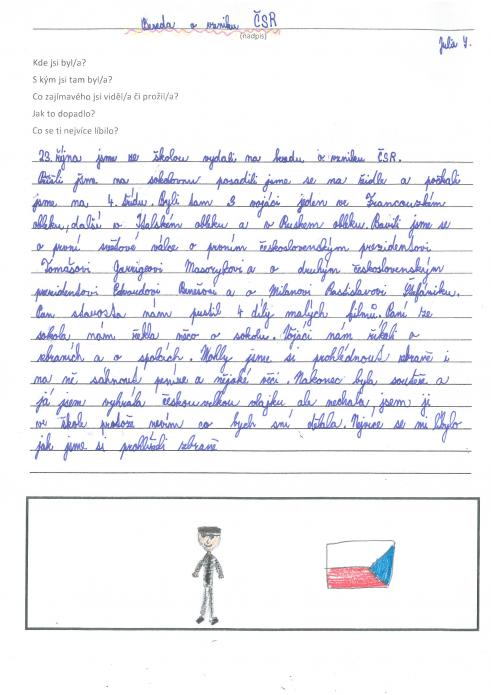 Beseda o vzniku ČSR
(nadpis)
Julia Y.
Kde jsi byl/a?
S kým jsi tam byl/a?
Co zajímavého jsi viděl/a či prožil/a?
Jak to dopadlo?
Co se ti nejvíce líbilo?
23. října jsme se školou vydali na besedu o vzniku ČSR.
Přišli jsme na sokolovnu posadili jsme se na židle a počkali
jsme na 4. třídu. Byli tam 3 vojáci jeden ve Francouzském
obleku, další v Italském obleku a v Ruskem obleku. Bavili jsme se
o první světové válce o prvním československým prezidentovi
Tomášovi Garrigovi Masarykovi a o druhým československým
prezidentovi Edvardovi Benešovi a o Milanovi Rastislavovi Štefánikovi.
Pan starosta nám pustil 4 díly malých filmů. Paní ze
sokola nám řekla něco o sokolu. Vojáci nám říkali o
zbraních a o spolcích. Mohly jsme si prohlédnout zbraně i
na ně sáhnout peníze a nějaké věci. Nakonec byla soutěž a
já jsem vyhrála českou velkou vlajku ale nechala jsem ji
ve škole protože nevím co bych sní dělala. Nejvíce se mi líbylo
jak jsme si prohlíželi zbraně